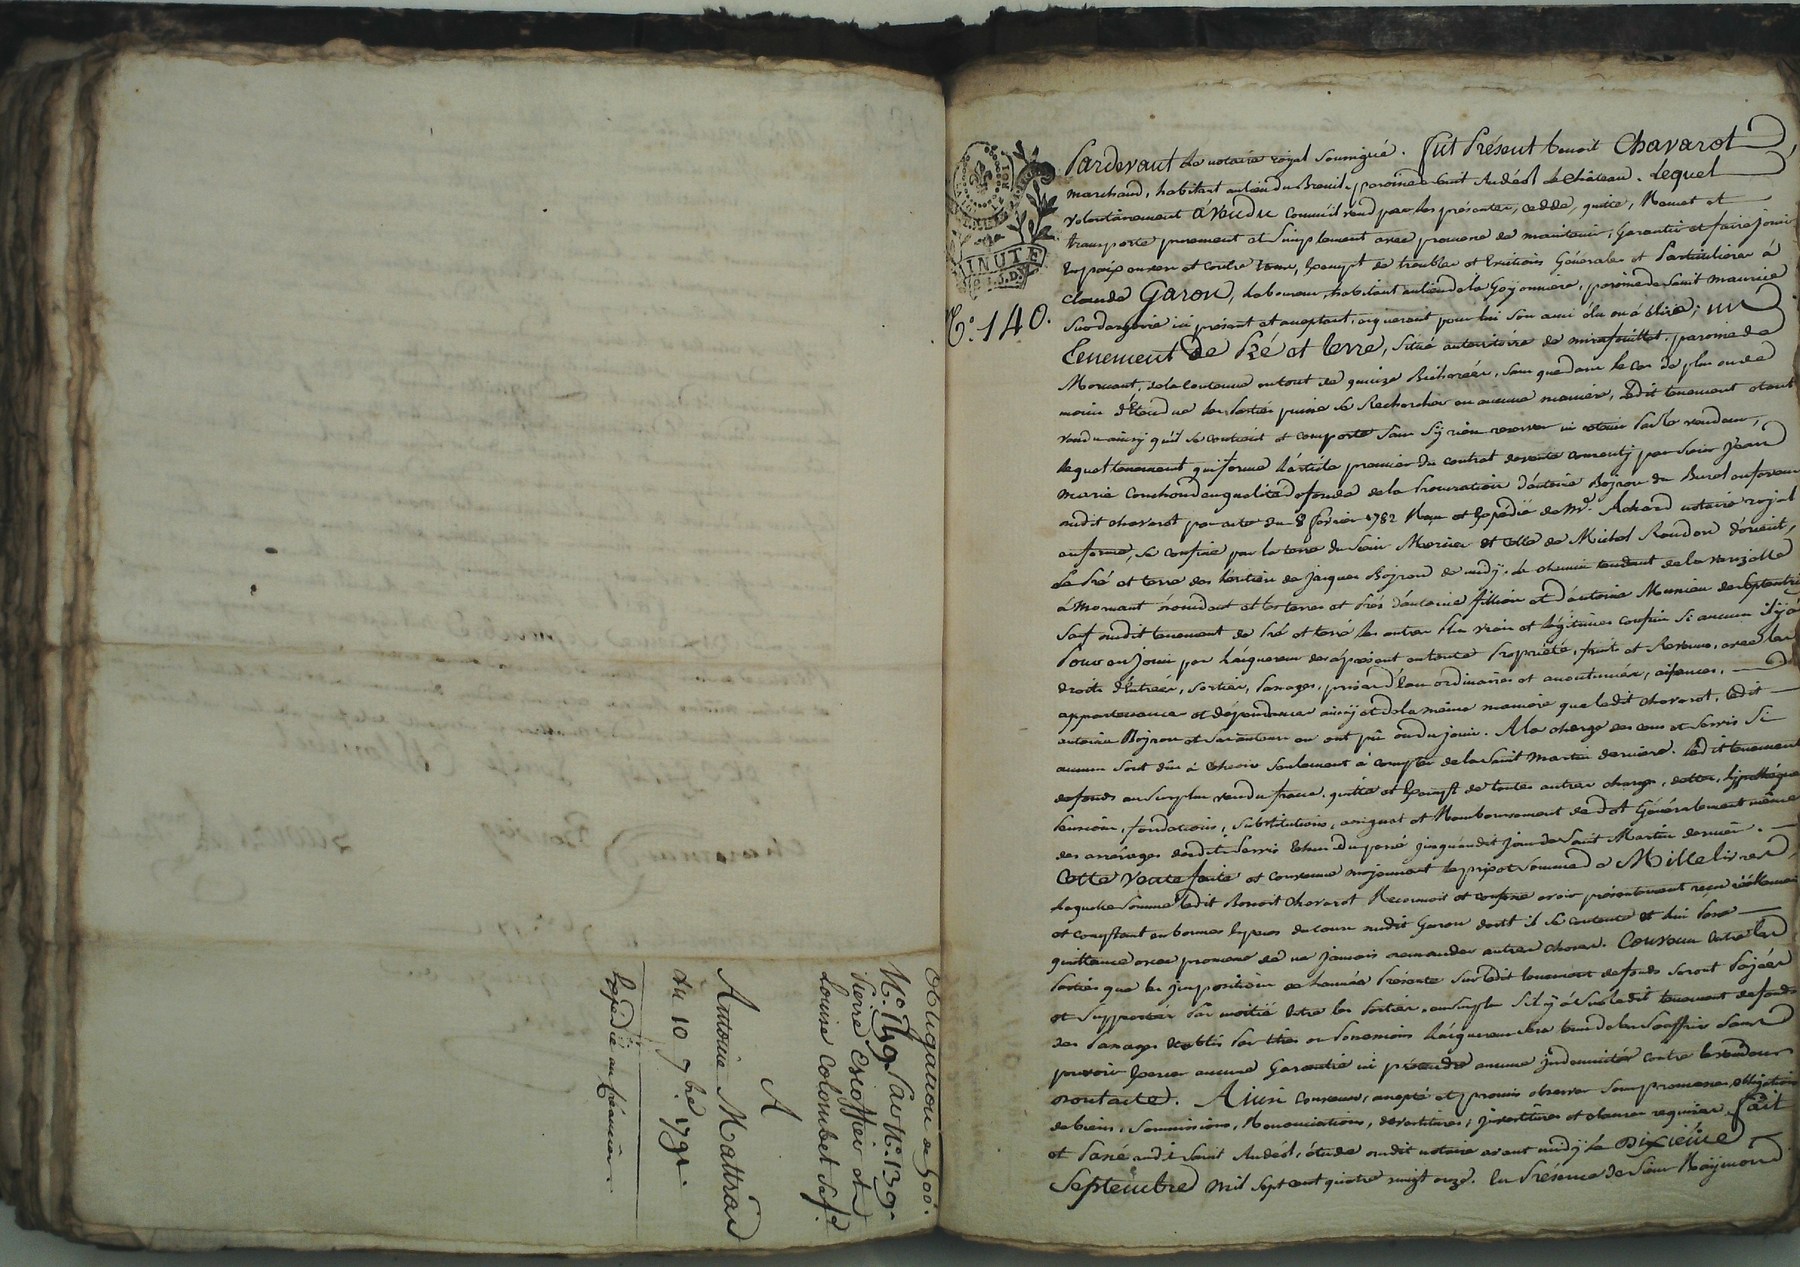 Obligation de 500#.
Pierre Escoffier et
Louise Colombet sa f.e
A
Antoine Mattrad
du 10 7bre 1791.
Expédié au créancier.
MINUTE
N.o 140.
Pardevant le notaire royal soussigné. fut Présent benoit Chavarot
marchand, habitant au lieu du Breuil, paroisse de saint Andéol le Château. Lequel
volontairement a vendu comme il vend par les présentes, cedde, quitte, Remet et
transporte purement et Simplement avec promesse de maintenir, Garantir et faire jouir
En paix envers et contre tous, Exempt de troubles et Evictions Générales et Particulieres à
Claude Garon, laboureur, habitant au lieu de la Goyonniere, paroisse de saint maurice
sur dargoire ici présent et acceptant, acquerant pour lui son ami élu ou à Elire; un
Tenement De Pré et terre, situé au territoire de paroisse de
Mornant, de la contenue en tout de quinze Bicherées, sans que dans le cas de plus ou de
moins d'Etendue les Parties puisse se Rechercher en aucune maniere, Ledit tenement étant
vendu ainsy qu'il se contient et comporte sans s'y rien reserver ni retenir Par le vendeur,
lequel tenement qui forme l'article premier du contrat de vente consenty par Sieur Jean
Marie en qualité de fondé de la Procuration d'antoine Bojron du Burel en faveur
audit chavarot par acte du 8 fevrier 1782 Reçu et Expédié de Me. Achard notaire royal
en forme, se confine par la terre du Sieur Mercier et celle de Michel Roudon d'orient,
Le Pré et terre des héritiers de Jacques Bojron de midy. Le chemin tendant de la
à Mornant d'occident et les terres et Prés d'antoine fillion et d'antoine de Septentrion
Sauf audit tenement de Pré et terre les autres Plus vrais et légitimes confins Si aucuns il y a
Pour en jouir par L'acquereur dès à présent en toute Propriété, fruits et Revenus, avec les
droits d'Entrées, sorties, Passages, prises d'Eau ordinaires et accoutumées, aisances,
appartenances et dépendances ainsy et de la même maniere que ledit chavarot, Ledit
antoine Bojron et ses auteurs en ont pû ou dû jouir. A la charge des cens et Servis Si
aucuns sont dûs à Echeoir seulement à compter de la Saint Martin derniere. Ledit tenement
de fonds au Surplus vendu franc, quitte et Exempt de toutes autres charges, dettes, hypotheques
Pensions, fondations, substitutions, et Remboursement de dot Généralement même
des arrérages desdits Servis Echus du passé jusqu'audit jour de Saint Martin dernier.
Cette Vente faite et convenue moyennant le prix et Somme de Mille livres,
Laquelle Somme ledit Benoit Chavarot Reconnoit et confesse avoir présentement reçue réellement
et comptant en bonnes Especes de cours audit Garon dont il se contente et lui Passe
quittance avec promesse de ne jamais demander autres choses. Convenu Entre les
Parties que les jmpositions de l'année Présente Sur ledit tenement de fonds seront Payées
et Supportées Par moitié Entre les Parties, au Surplus S'il y à Sur ledit tenement de fonds
des Passages établis Par titres ou Possessions L'acquereur sera tenu de les Souffrir Sans
pouvoir Exercer aucune Garantie ni prétendre aucunes jndemnités contre le vendeur
Ainsi convenu, accepté et promis observer Sous promesses, obligation
de biens, soumissions, Renonciations, devestitures, jnvestitures et clauses requises. fait
et Passé audit Saint Andéol, étude dudit notaire avant midy Le Dixième
Septembre mil Sept cent quatre vingt onze. En Présence de Sieur Raymond